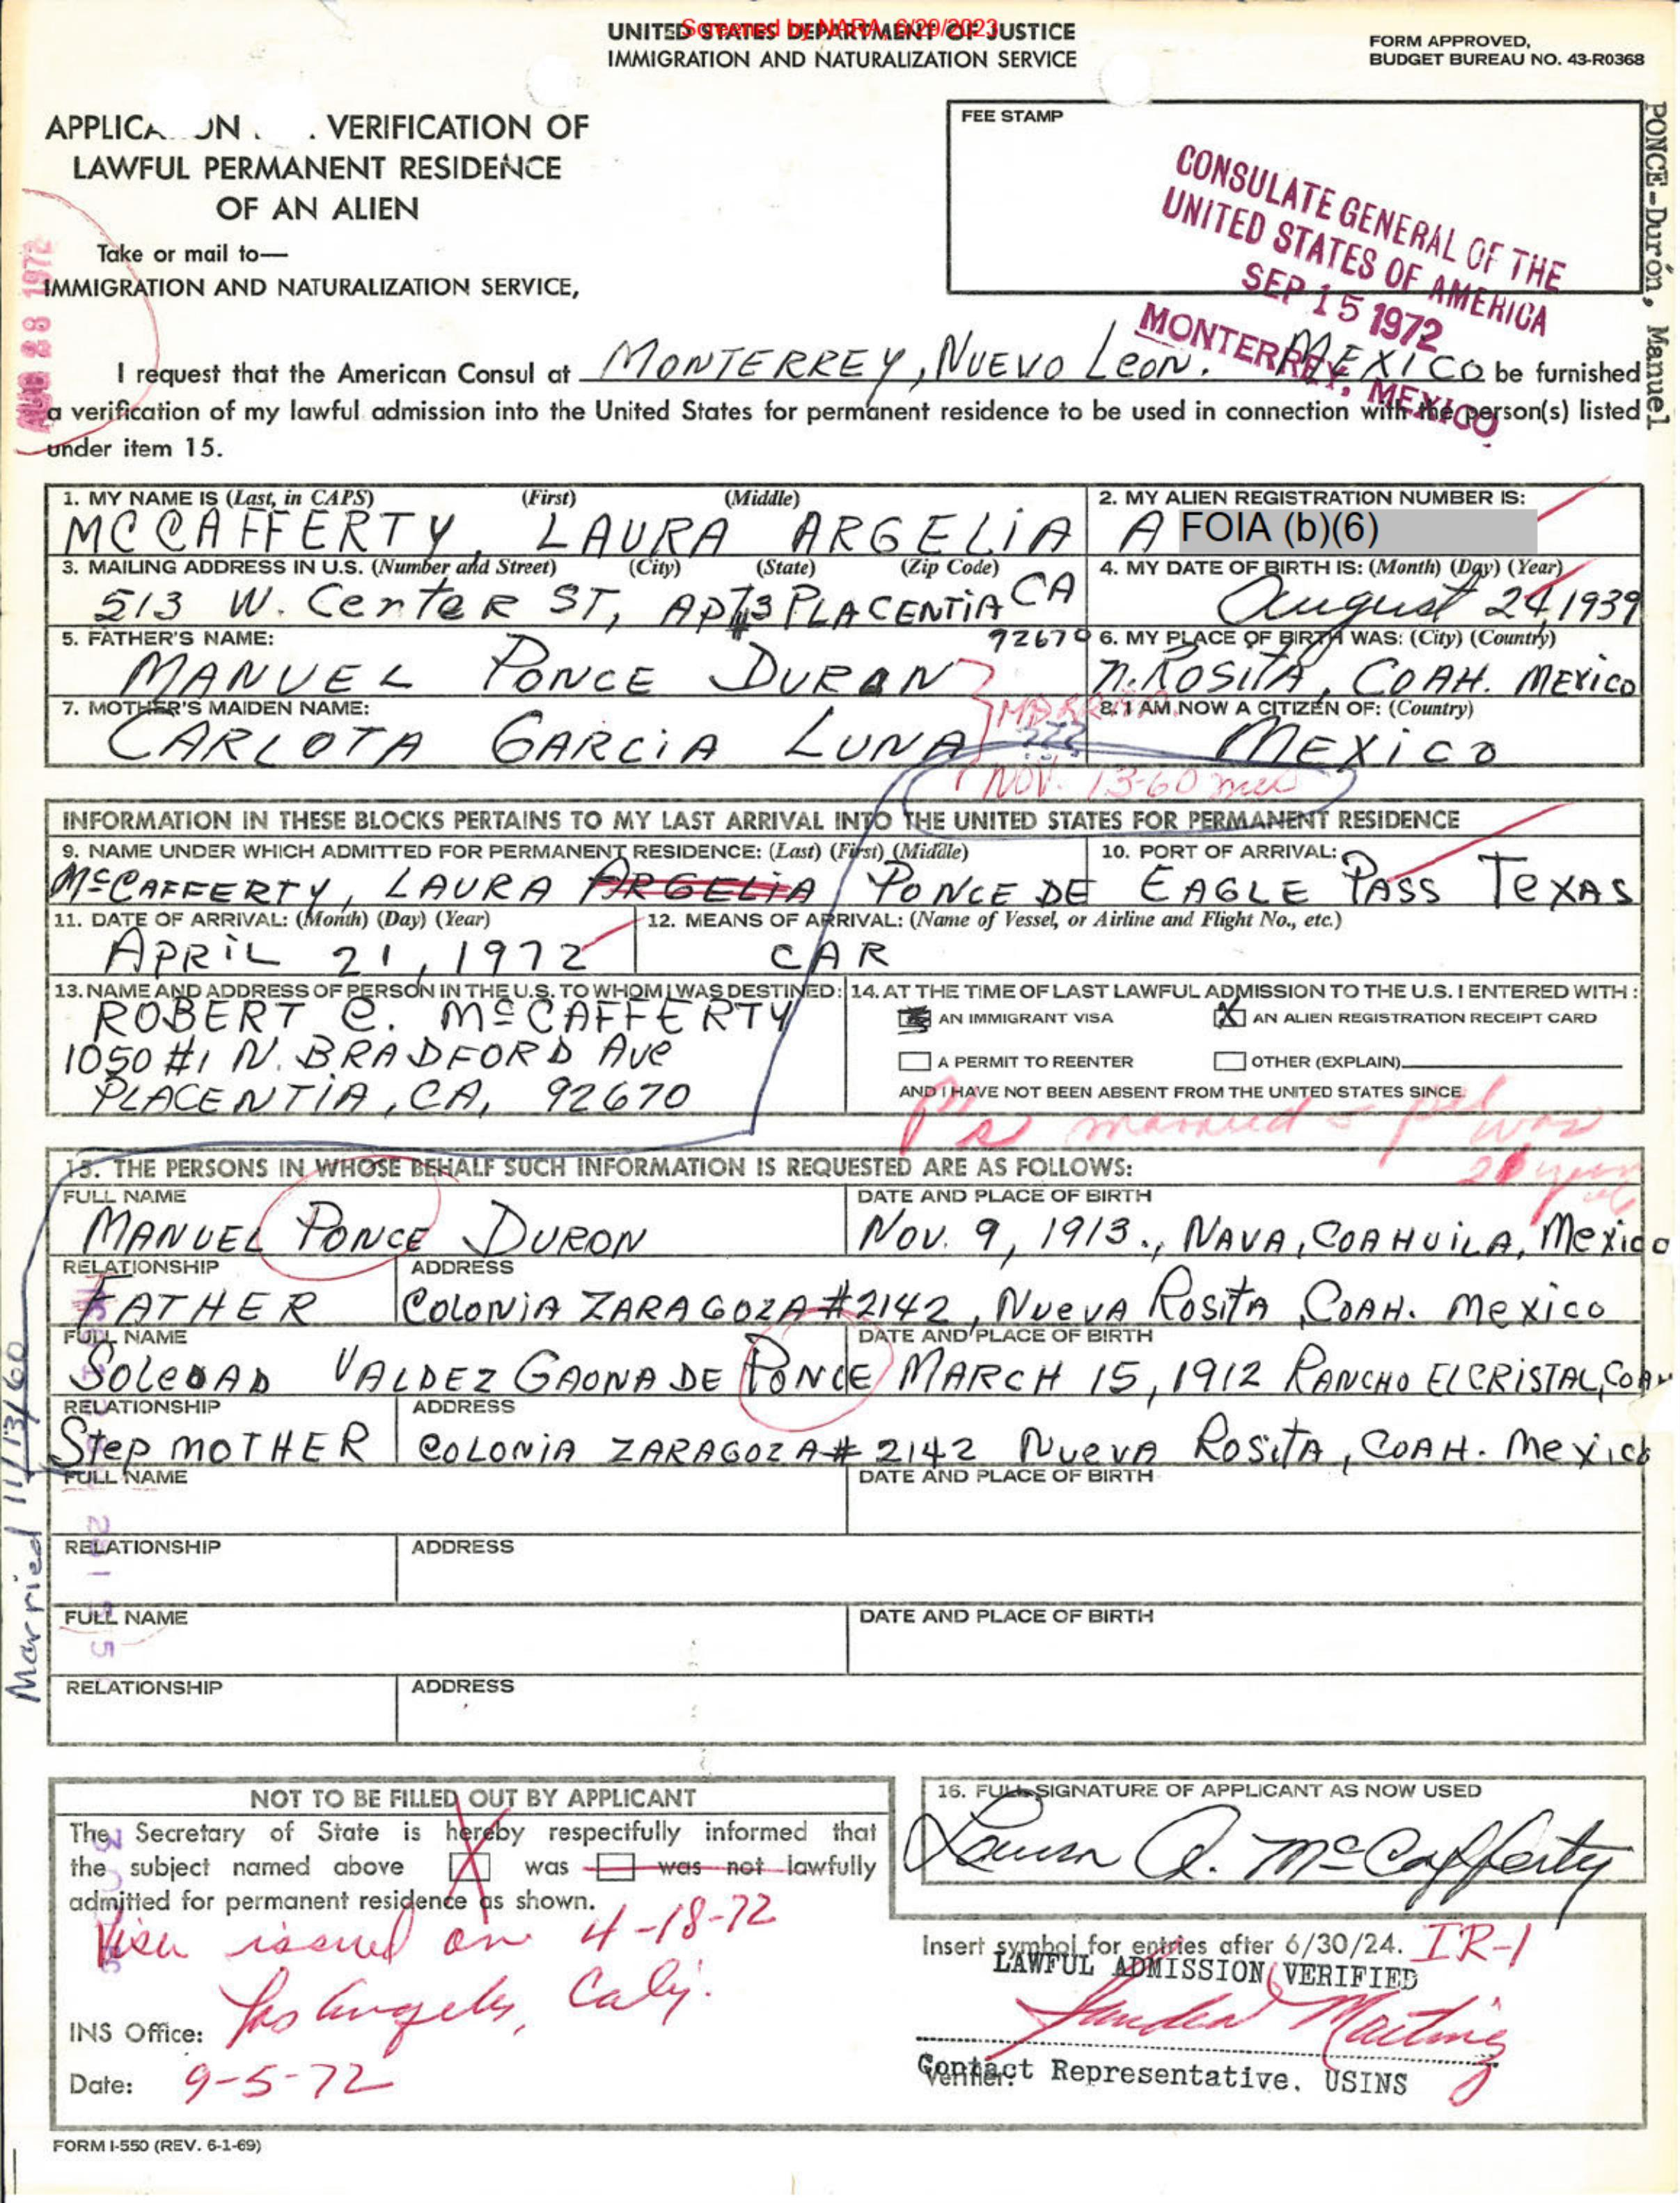 Screened by NARA, 6/29/2023
UNITED STATES DEPARTMENT OF JUSTICE
IMMIGRATION AND NATURALIZATION SERVICE
FORM APPROVED,
BUDGET BUREAU NO. 43-R0368
APPLICA ON VERIFICATION OF
LAWFUL PERMANENT RESIDENCE
OF AN ALIEN
Take or mail to—
IMMIGRATION AND NATURALIZATION SERVICE,
FEE STAMP
CONSULATE GENERAL OF THE
UNITED STATES OF AMERICA
SEP 15 1972
MONTERREY, MEXICO
PONCE-Durón, Manuel
AUG 28 1972
I request that the American Consul at MONTERREY, NUEVO LEON. MEXICO be furnished
a verification of my lawful admission into the United States for permanent residence to be used in connection with the person(s) listed
under item 15.
1. MY NAME IS (Last, in CAPS) (First) (Middle)
MCCAFFERTY, LAURA ARGELIA
2. MY ALIEN REGISTRATION NUMBER IS:
A FOIA (b)(6)
3. MAILING ADDRESS IN U.S. (Number and Street) (City) (State) (Zip Code)
513 W. CENTER ST, APT #3 PLACENTIA CA
92670
4. MY DATE OF BIRTH IS: (Month) (Day) (Year)
August 24, 1939
5. FATHER'S NAME:
MANUEL PONCE DURAN
6. MY PLACE OF BIRTH WAS: (City) (Country)
N. ROSITA, COAH. MEXICO
7. MOTHER'S MAIDEN NAME:
CARLOTA GARCIA LUNA
8. I AM NOW A CITIZEN OF: (Country)
MEXICO
???
NOV. 13-60
INFORMATION IN THESE BLOCKS PERTAINS TO MY LAST ARRIVAL INTO THE UNITED STATES FOR PERMANENT RESIDENCE
9. NAME UNDER WHICH ADMITTED FOR PERMANENT RESIDENCE: (Last) (First) (Middle)
McCAFFERTY, LAURA ARGELIA PONCE DE
10. PORT OF ARRIVAL:
EAGLE PASS TEXAS
11. DATE OF ARRIVAL: (Month) (Day) (Year)
APRIL 21, 1972
12. MEANS OF ARRIVAL: (Name of Vessel, or Airline and Flight No., etc.)
CAR
13. NAME AND ADDRESS OF PERSON IN THE U.S. TO WHOM I WAS DESTINED:
ROBERT C. McCAFFERTY
1050 #1 N. BRADFORD AVE
PLACENTIA, CA, 92670
14. AT THE TIME OF LAST LAWFUL ADMISSION TO THE U.S. I ENTERED WITH:
AN IMMIGRANT VISA X AN ALIEN REGISTRATION RECEIPT CARD
A PERMIT TO REENTER OTHER (EXPLAIN)
AND I HAVE NOT BEEN ABSENT FROM THE UNITED STATES SINCE
P's married
was
15. THE PERSONS IN WHOSE BEHALF SUCH INFORMATION IS REQUESTED ARE AS FOLLOWS:
FULL NAME DATE AND PLACE OF BIRTH
MANUEL PONCE DURON Nov. 9, 1913., NAVA, COAHUILA, Mexico
RELATIONSHIP ADDRESS
FATHER COLONIA ZARAGOZA #2142, NUEVA ROSITA, COAH. Mexico
FULL NAME DATE AND PLACE OF BIRTH
SOLEDAD VALDEZ GAONA DE PONCE MARCH 15, 1912 RANCHO EL CRISTAL, COAH
RELATIONSHIP ADDRESS
STEP MOTHER COLONIA ZARAGOZA # 2142 NUEVA ROSITA, COAH. Mexico
FULL NAME DATE AND PLACE OF BIRTH
RELATIONSHIP ADDRESS
FULL NAME DATE AND PLACE OF BIRTH
RELATIONSHIP ADDRESS
Married 11/13/60
NOT TO BE FILLED OUT BY APPLICANT
The Secretary of State is hereby respectfully informed that
the subject named above X was was not lawfully
admitted for permanent residence as shown.
Visa issued on 4-18-72
INS Office: Los Angeles, Calif.
Date: 9-5-72
16. FULL SIGNATURE OF APPLICANT AS NOW USED
Laura A. McCafferty
Insert symbol for entries after 6/30/24. IR-1
LAWFUL ADMISSION VERIFIED
Sandra Martinez
Verifier:
Contact Representative, USINS
FORM I-550 (REV. 6-1-69)